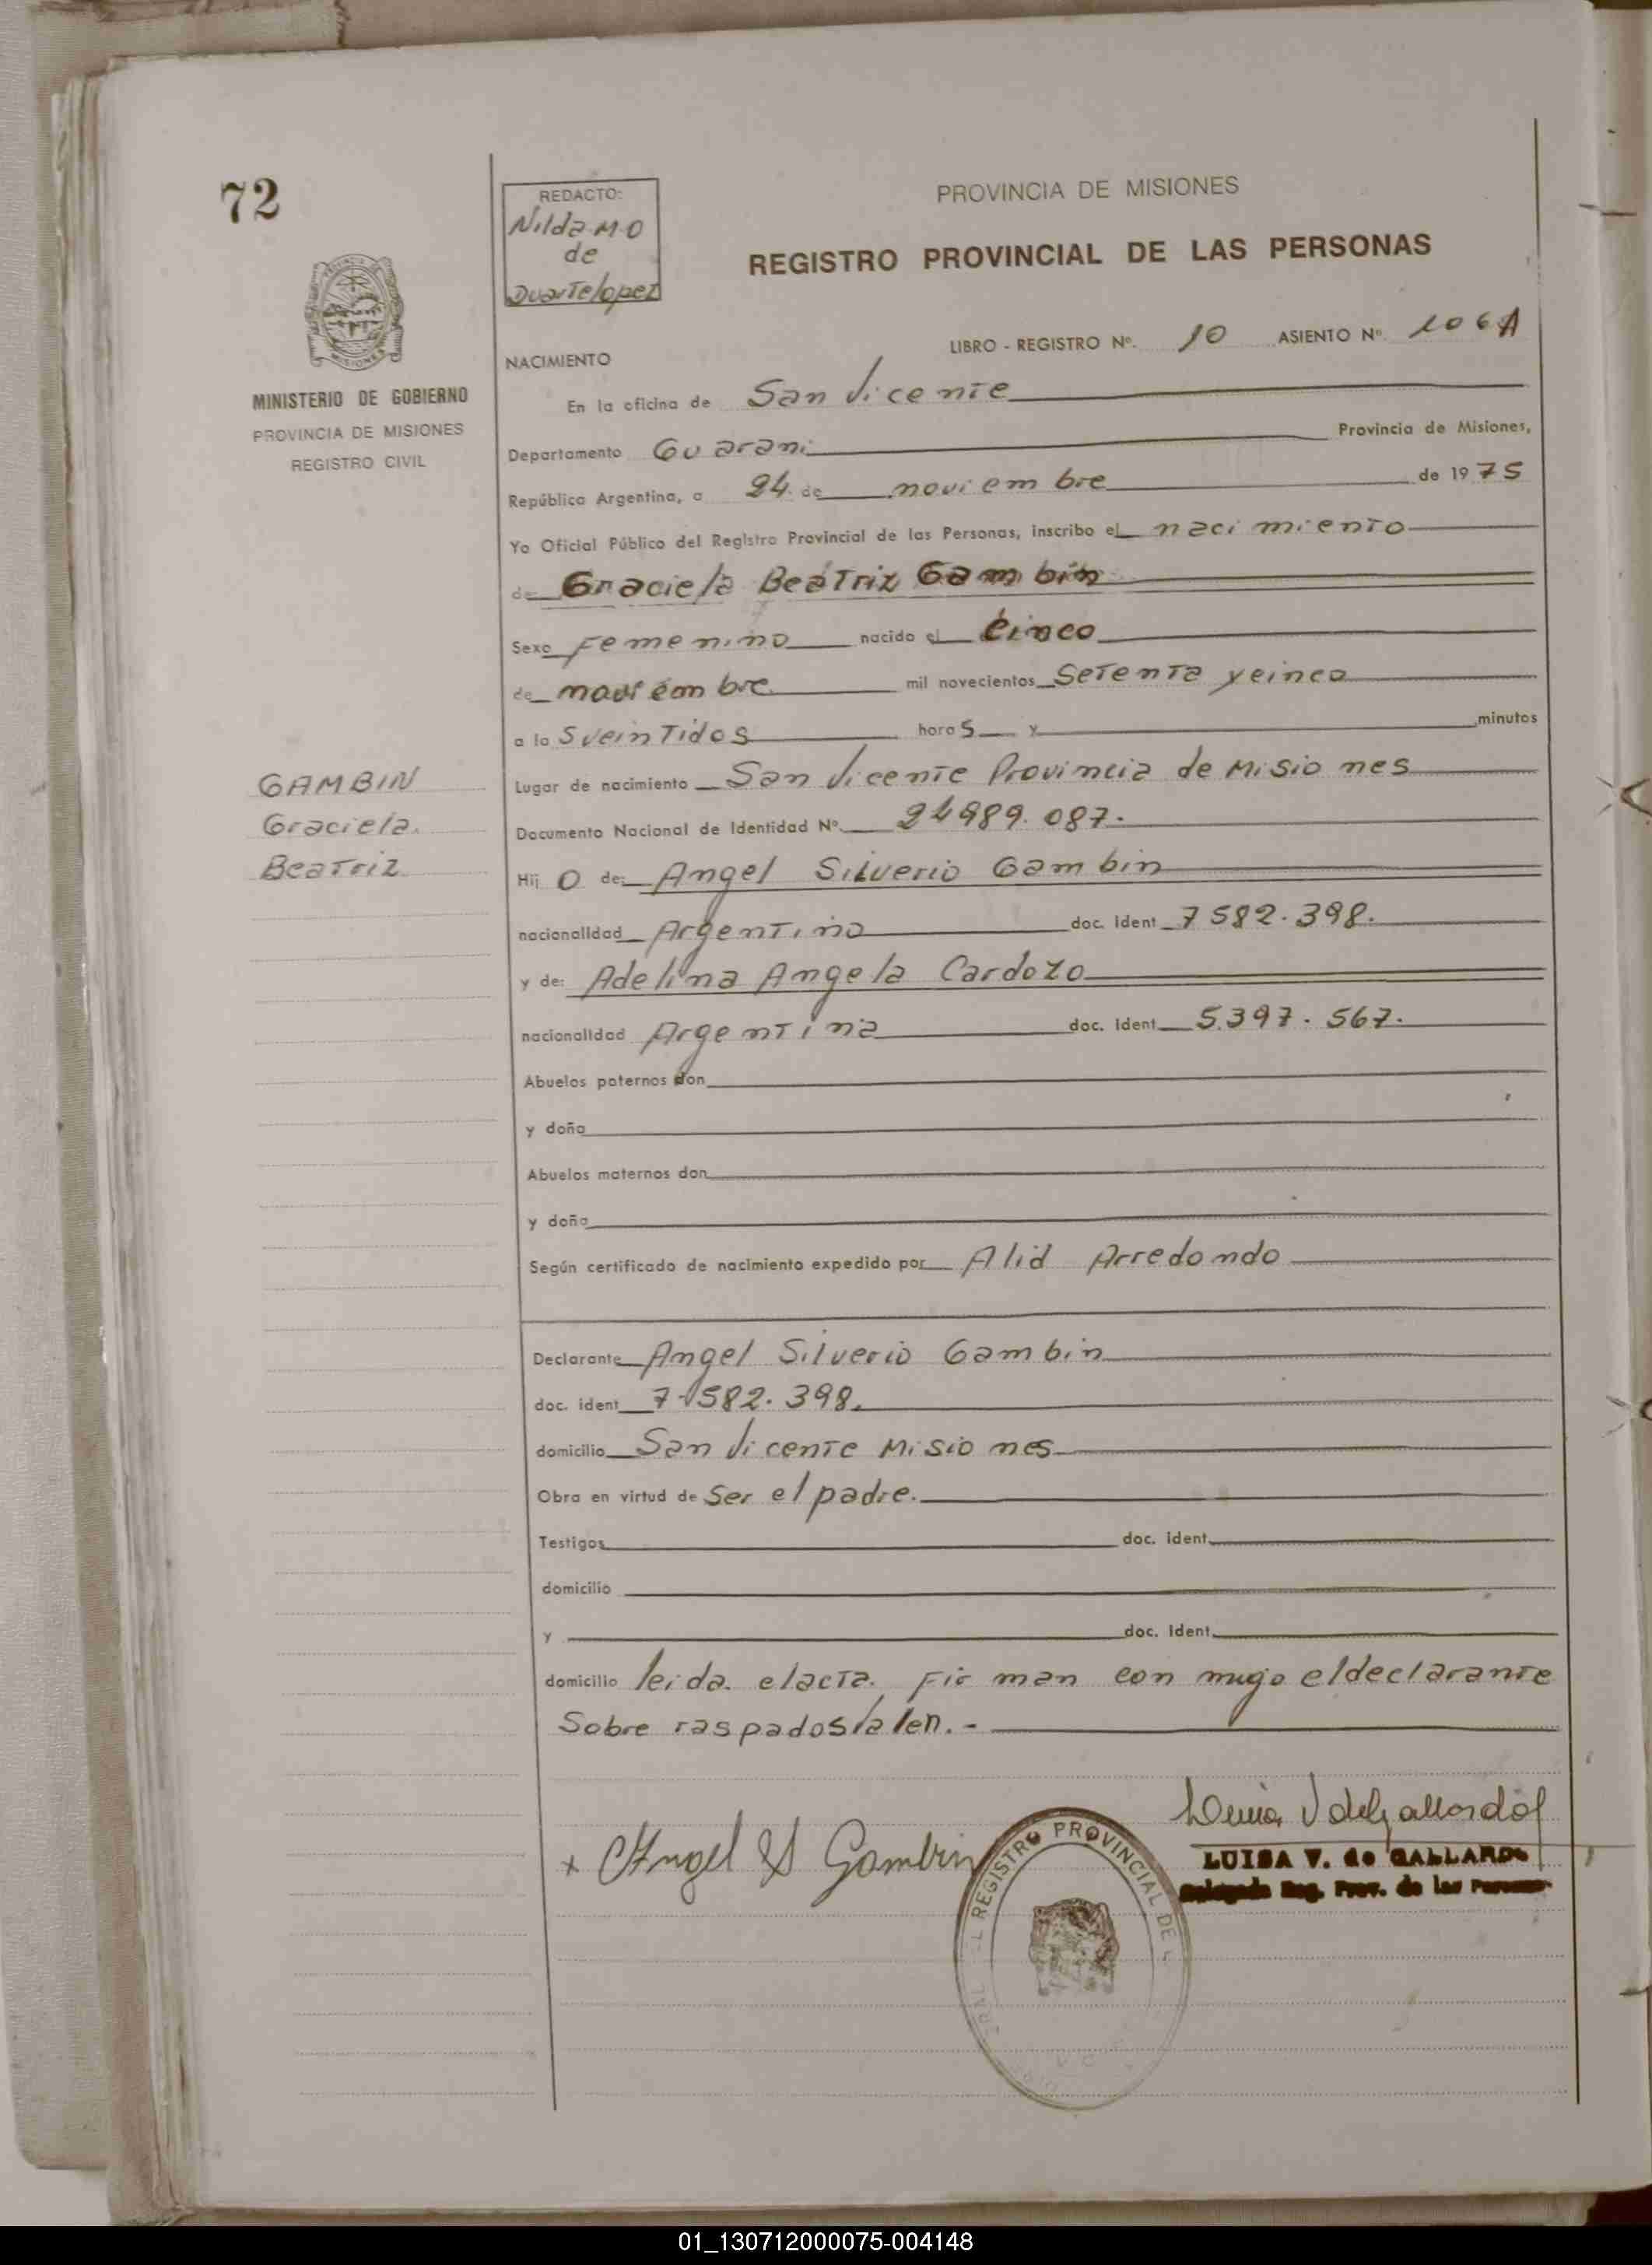 72
REDACTO:
Nilda M O
de
Duarte lopez
PROVINCIA DE MISIONES
REGISTRO PROVINCIAL DE LAS PERSONAS
MINISTERIO DE GOBIERNO
PROVINCIA DE MISIONES
REGISTRO CIVIL
LIBRO - REGISTRO Nº. 10 ASIENTO Nº. 106 A
NACIMIENTO
En la oficina de San Vicente
Departamento Guarani Provincia de Misiones,
República Argentina, a 24 de noviembre de 1975
Yo Oficial Público del Registro Provincial de las Personas, inscribo el nacimiento
de Graciela Beatriz Gambin
Sexo Femenino nacido el cinco
de noviembre mil novecientos Setenta y cinco
a las veintidos horas y minutos
GAMBIN
Graciela
Beatriz
Lugar de nacimiento San Vicente Provincia de Misiones
Documento Nacional de Identidad Nº. 24989.087.
Hij O de: Angel Silverio Gambin
nacionalidad Argentino doc. ident 7582.398.
y de: Adelina Angela Cardozo
nacionalidad Argentina doc. ident 5.397.567.
Abuelos paternos don
y doña
Abuelos maternos don
y doña
Según certificado de nacimiento expedido por Alid Arredondo
Declarante Angel Silverio Gambin
doc. ident 7.582.398.
domicilio San Vicente Misiones
Obra en virtud de Ser el padre.
Testigos doc. ident.
domicilio
y doc. ident.
domicilio leida el acta. Firman con migo el declarante
Sobre raspados
x Angel S Gambin
REGISTRO PROVINCIAL DE L
LUISA V. de GALLARDO
Delegada Reg. Prov. de las Personas
01_130712000075-004148